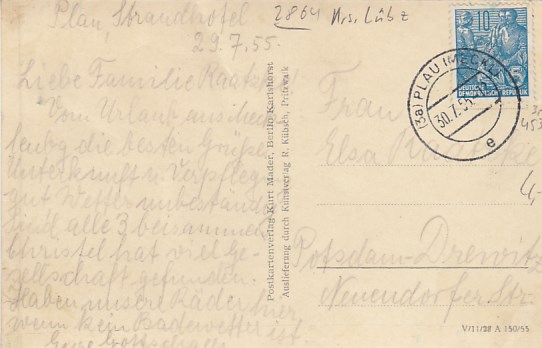 Plau, Strandhotel
29.7.55.
Liebe Familie Raatz
Vom Urlaub aus
die besten Grüße
Unterkunft u. Verpfleg
gut Wetter unbeständ
sind alle 3 beisammen
Christel hat viel Ge-
sellschaft gefunden.
Haben unsere Räder hier
wenn kein Badewetter ist
2864 Krs. Lübz
Postkartenverlag Kurt Mader, Berlin-Karlshorst
Auslieferung durch Kunstverlag R. Kübsch, Pritzwalk
10
DEUTSCHE
DEMOKRATISCHE REPUBLIK
(3a) PLAU (MECKL)
30.7.55
e
Frau
Elsa
4,-
Potsdam-Drewitz
Neuendorfer Str.
V/11/28 A 150/55